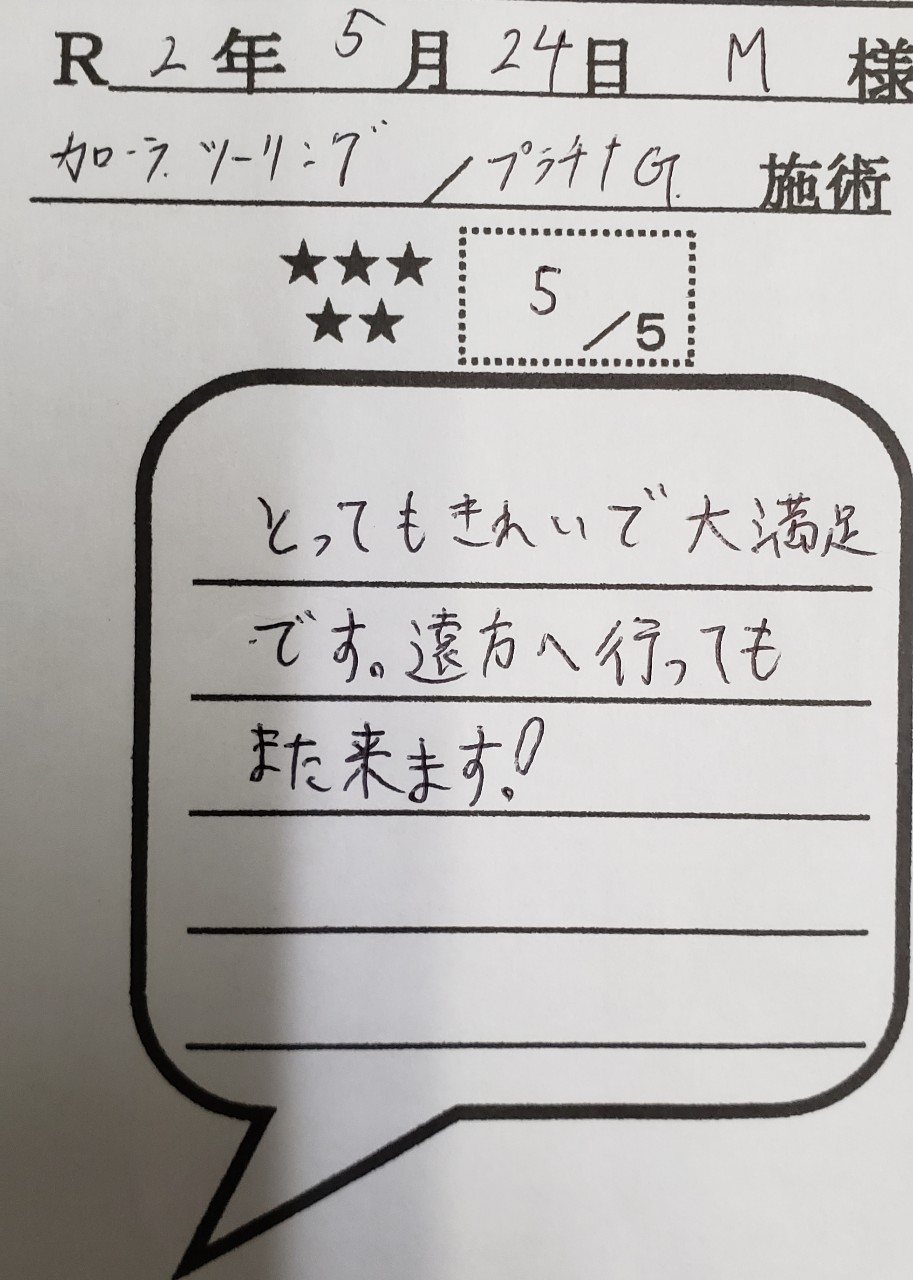 R 2 年 5 月 24 日 M 様
カローラ ツーリング / プラチナ G. 施術
★★★
★★
5 / 5
とってもきれいで大満足
です。遠方へ行っても
また来ます!